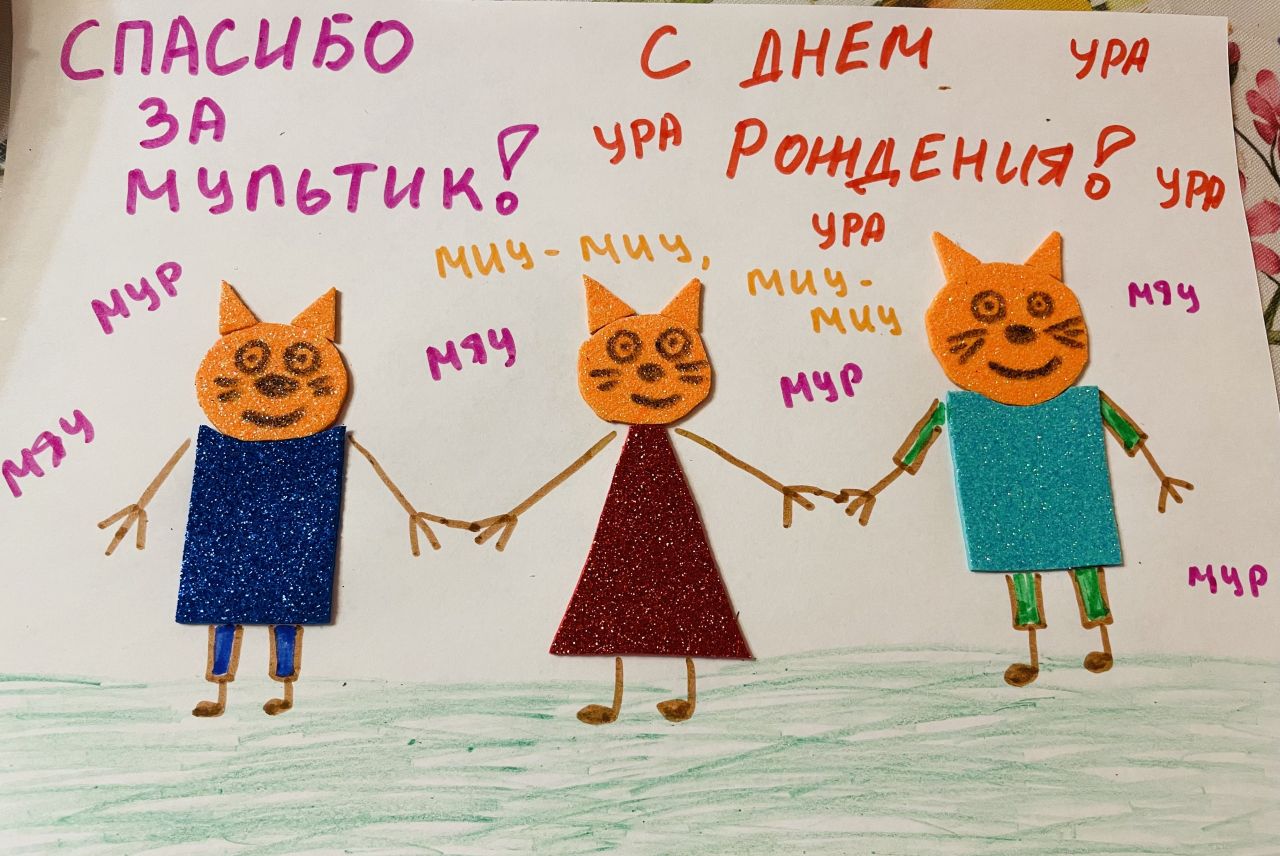 СПАСИБО
ЗА
МУЛЬТИК!
С ДНЕМ
РОЖДЕНИЯ!
УРА
УРА
УРА
УРА
МИУ-МИУ,
МИУ-
МИУ
МУР
МЯУ
МЯУ
МУР
МЯУ
МУР